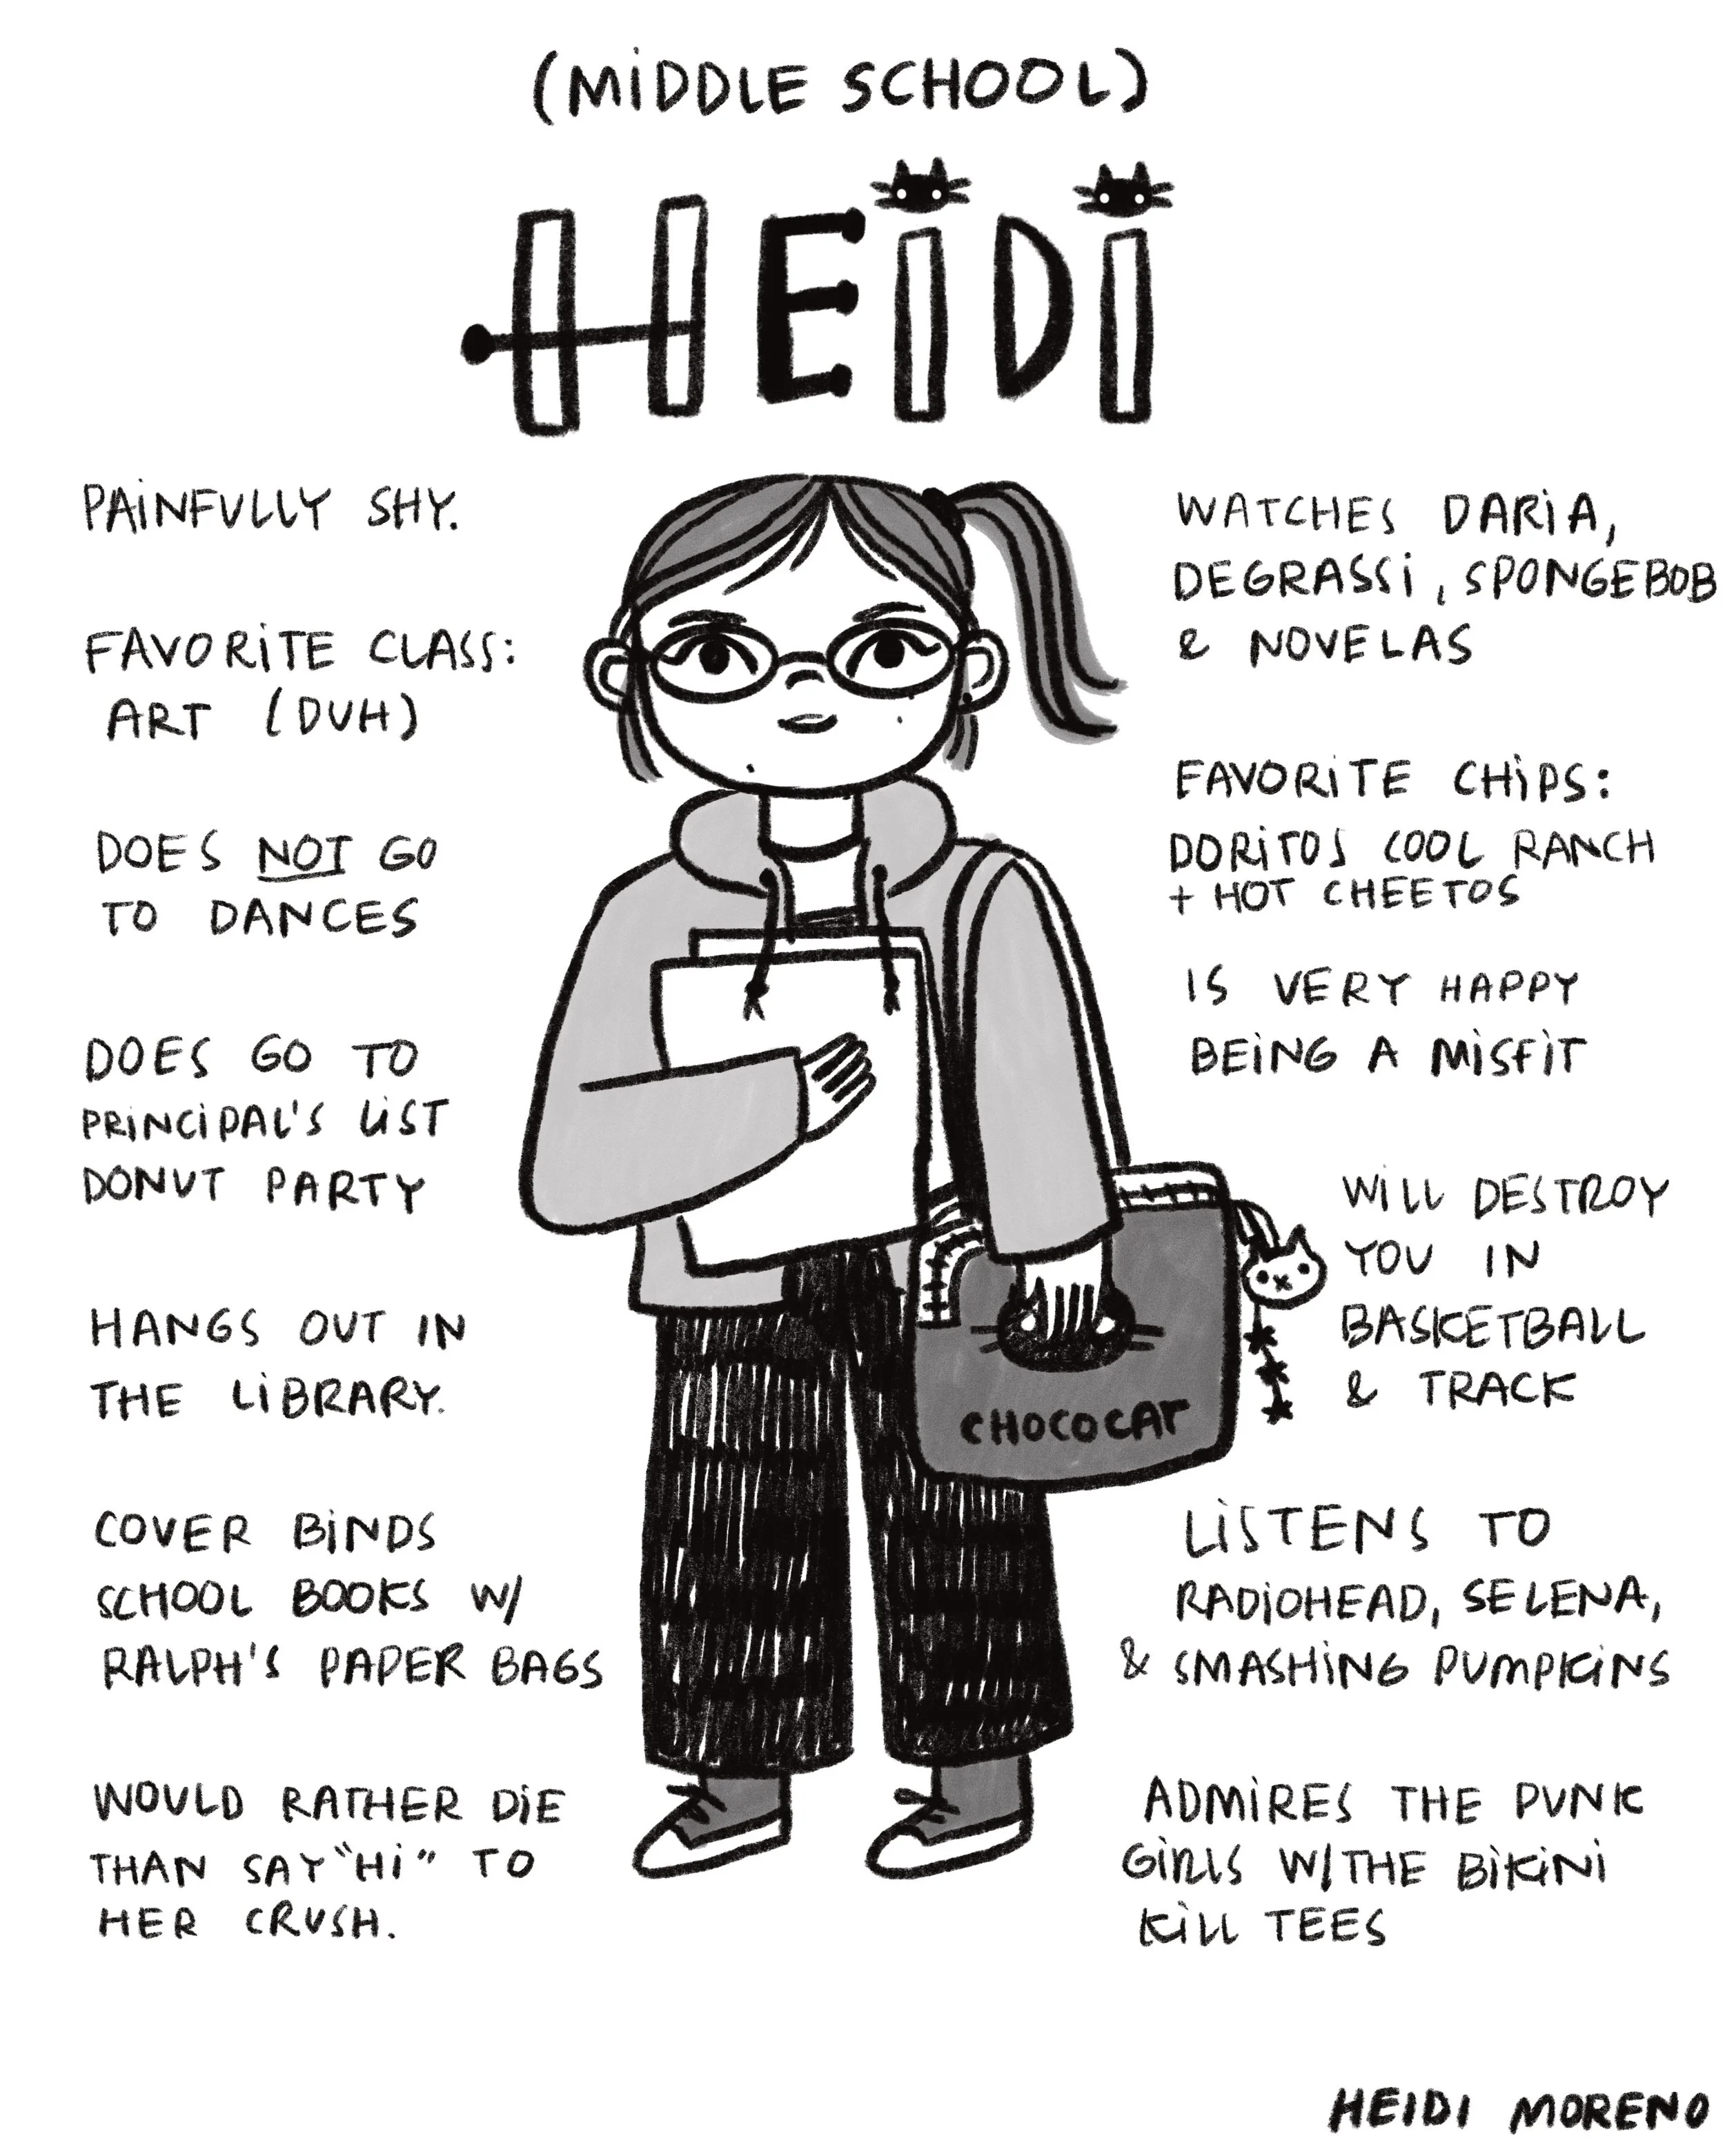 (MIDDLE SCHOOL)
HEIDI
PAINFULLY SHY.
FAVORITE CLASS:
ART (DUH)
DOES NOT GO
TO DANCES
DOES GO TO
PRINCIPAL'S LIST
DONUT PARTY
HANGS OUT IN
THE LIBRARY.
COVER BINDS
SCHOOL BOOKS W/
RALPH'S PAPER BAGS
WOULD RATHER DIE
THAN SAY "HI" TO
HER CRUSH.
WATCHES DARIA,
DEGRASSI, SPONGEBOB
& NOVELAS
FAVORITE CHIPS:
DORITOS COOL RANCH
+ HOT CHEETOS
IS VERY HAPPY
BEING A MISFIT
WILL DESTROY
YOU IN
BASKETBALL
& TRACK
LISTENS TO
RADIOHEAD, SELENA,
& SMASHING PUMPKINS
ADMIRES THE PUNK
GIRLS W/THE BIKINI
KILL TEES
CHOCOCAT
HEIDI MORENO